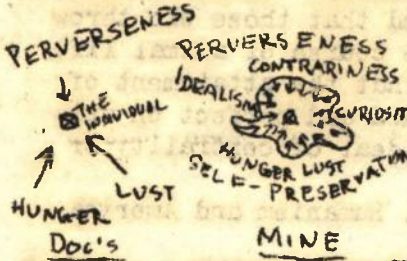 PERVERSENESS
THE
INDIVIDUAL
HUNGER
LUST
DOC'S
PERVERSENESS
CONTRARINESS
IDEALISM
CURIOSIT
HUNGER LUST
SELF-PRESERVATION
MINE